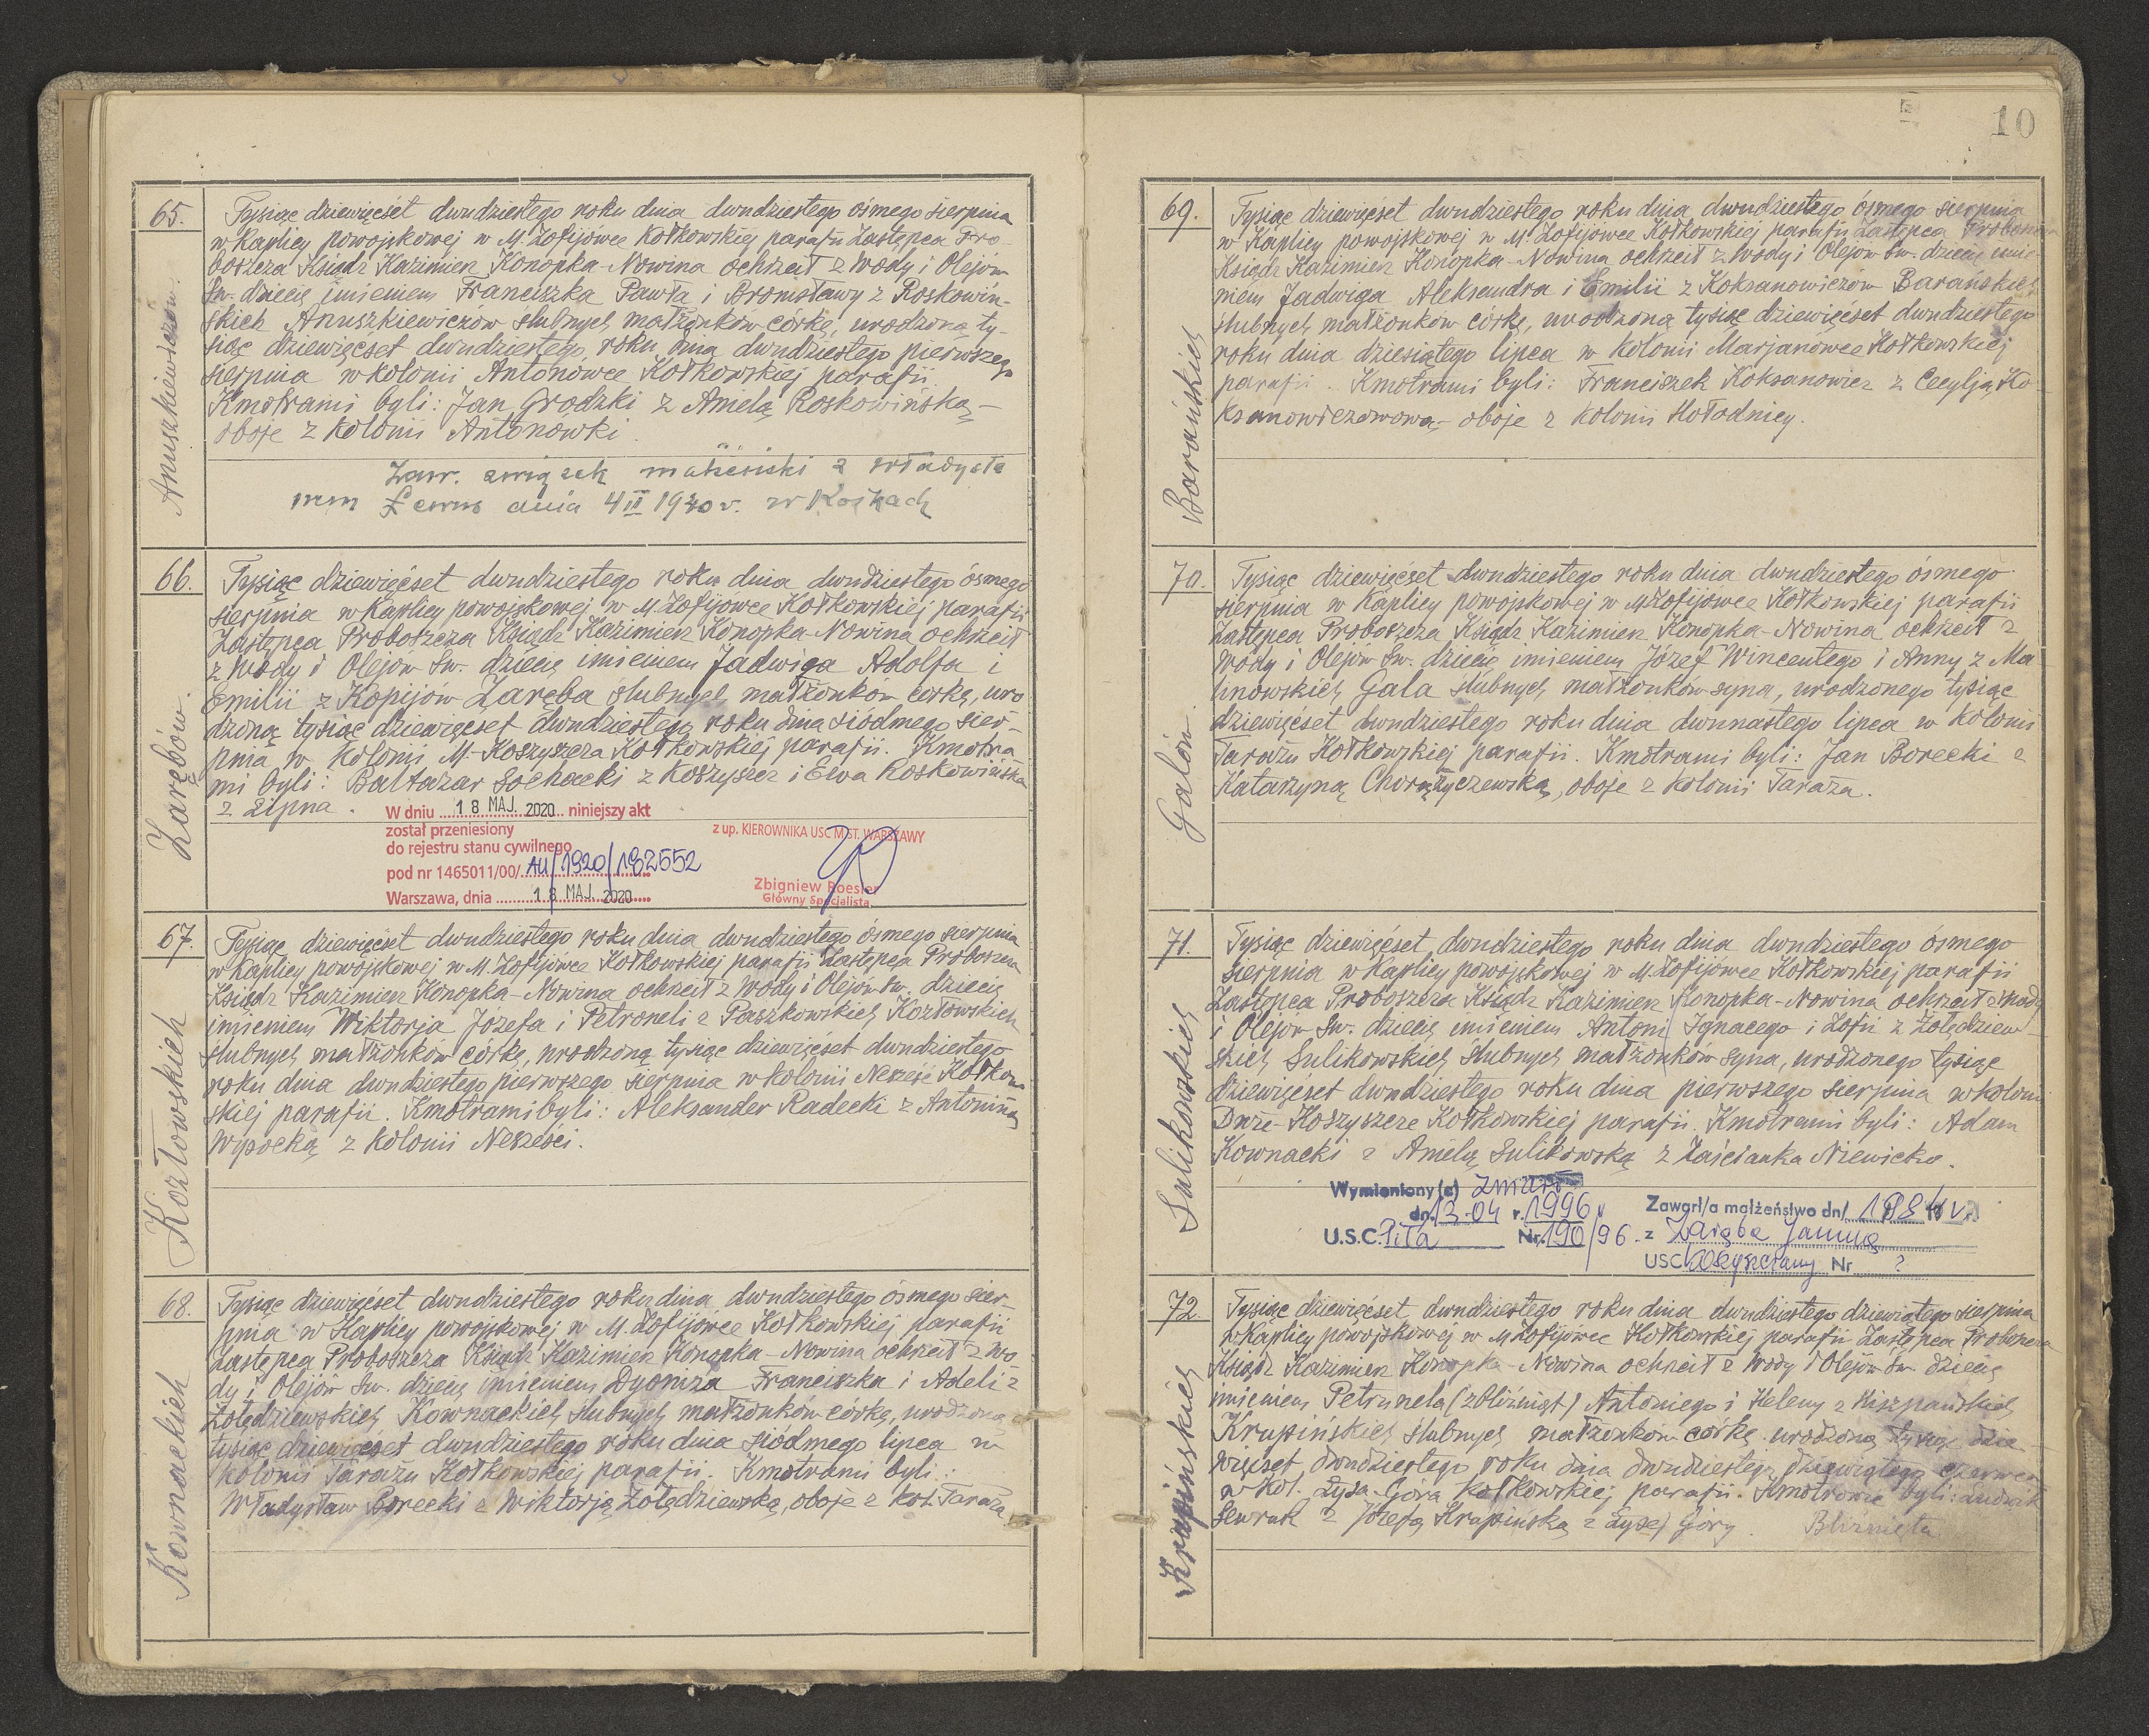 65.
Anuszkiewiczów.
Tysiąc dziewięćset dwudziestego roku dnia dwudziestego ósmego sierpnia
w Kaplicy powojskowej w M. Zofijówce Kołkowskiej parafii Zastępca Pro-
boszcza Ksiądz Kazimierz Konopka-Nowina ochrzcił z Wody i Olejów
Św. dziecię imieniem Franciszka Pawła i Bronisławy z Roskowiń-
skich Anuszkiewiczów ślubnych małżonków córkę, urodzoną ty-
siąc dziewięćset dwudziestego roku dnia dwudziestego pierwszego
sierpnia w kolonii Antonówce Kołkowskiej parafii.
Kmotrami byli: Jan Grodzki z Amelą Roskowińską -
oboje z kolonii Antonowki.
Zawr. związek małżeński z Władysła
wem dnia 4 II 1940 r. w
66.
Zarębów.
Tysiąc dziewięćset dwudziestego roku dnia dwudziestego ósmego
sierpnia w Kaplicy powojskowej w M. Zofijówce Kołkowskiej parafii
Zastępca Proboszcza Ksiądz Kazimierz Konopka-Nowina ochrzcił
z Wody i Olejów Św. dziecię imieniem Jadwiga Adolfa i
Emilii z Kopijów Zaręba ślubnych małżonków córkę, uro
dzoną tysiąc dziewięćset dwudziestego roku dnia siódmego sier-
pnia w kolonii M-Koszyszcza Kołkowskiej parafii. Kmotra
mi byli: Baltazar Sochacki z Koszyszcz i Ewa Roskowińska
z Lipna.
W dniu 18 MAJ. 2020 niniejszy akt
został przeniesiony
do rejestru stanu cywilnego
pod nr 1465011/00/AU/1920/182552
Warszawa, dnia 18 MAJ. 2020
z up. KIEROWNIKA USC M.ST. WARSZAWY
Zbigniew Roesler
Główny Specjalista
67.
Kozłowskich
Tysiąc dziewięćset dwudziestego roku dnia dwudziestego ósmego sierpnia
w Kaplicy powojskowej w M. Zofijówce Kołkowskiej parafii Zastępca Proboszcza
Ksiądz Kazimierz Konopka-Nowina ochrzcił z Wody i Olejów Św. dziecię
imieniem Wiktorja Józefa i Petroneli z Paszkowskich Kozłowskich
ślubnych małżonków córkę, urodzoną tysiąc dziewięćset dwudziestego
roku dnia dwudziestego pierwszego sierpnia w kolonii Kołkow-
skiej parafii. Kmotrami byli: Aleksander Radecki z Antoniną
Wysocką z kolonii
68.
Kownackich
Tysiąc dziewięćset dwudziestego roku dnia dwudziestego ósmego sier-
pnia w Kaplicy powojskowej w M. Zofijówce Kołkowskiej parafii
Zastępca Proboszcza Ksiądz Kazimierz Konopka-Nowina ochrzcił z Wo-
dy i Olejów Św. dziecię imieniem Dyoniza Franciszka i Adeli z
Żołędziewskich Kownackich ślubnych małżonków córkę, urodzoną
tysiąc dziewięćset dwudziestego roku dnia siódmego lipca w
kolonii Tarażu Kołkowskiej parafii. Kmotrami byli:
Władysław Borecki z Wiktorją Żołędziewską, oboje z kol. Taraża
10
69.
Barańskich
Tysiąc dziewięćset dwudziestego roku dnia dwudziestego ósmego sierpnia
w Kaplicy powojskowej w M. Zofijówce Kołkowskiej parafii Zastępca Proboszcza
Ksiądz Kazimierz Konopka-Nowina ochrzcił z Wody i Olejów Św. dziecię imie-
niem Jadwiga Aleksandra i Emilii z Koksanowiczów Barańskich
ślubnych małżonków córkę, urodzoną tysiąc dziewięćset dwudziestego
roku dnia dziesiątego lipca w kolonii Marjanówce Kołkowskiej
parafii. Kmotrami byli: Franciszek Koksanowicz z Cecylją Ko
ksanowiczowową - oboje z kolonii Hołodnicy.
70.
Galów.
Tysiąc dziewięćset dwudziestego roku dnia dwudziestego ósmego
sierpnia w Kaplicy powojskowej w M Zofijówce Kołkowskiej parafii
Zastępca Proboszcza Ksiądz Kazimierz Konopka-Nowina ochrzcił z
Wody i Olejów Św. dziecię imieniem Józef Wincentego i Anny z Ma
linowskich Gala ślubnych małżonków syna, urodzonego tysiąc
dziewięćset dwudziestego roku dnia dwunastego lipca w kolonii
Tarażu Kołkowskiej parafii. Kmotrami byli: Jan Borecki z
Katarzyną Chorążyczewską, oboje z kolonii Taraża.
71.
Sulikowskich
Tysiąc dziewięćset dwudziestego roku dnia dwudziestego ósmego
sierpnia w Kaplicy powojskowej w M. Zofijówce Kołkowskiej parafii
Zastępca Proboszcza Ksiądz Kazimierz Konopka-Nowina ochrzcił z Wody
i Olejów Św. dziecię imieniem Antoni Ignacego i Zofii z Żołędziew-
skich Sulikowskich ślubnych małżonków syna, urodzonego tysiąc
dziewięćset dwudziestego roku dnia pierwszego sierpnia w kolonii
Duże-Koszyszcze Kołkowskiej parafii. Kmotrami byli: Adam
Kownacki z Amelą Sulikowską z Zaścianka Niewicko.
Wymieniony(a) zmarł
dn. 13-04 r. 1996
U.S.C. Piła Nr. 190/96.
Zawarł/a małżeństwo dn/
z Zaręba Janiną
USC Nr ?
72.
Krupińskich
Tysiąc dziewięćset dwudziestego roku dnia dwudziestego dziewiątego sierpnia
w Kaplicy powojskowej w M Zofijówce Kołkowskiej parafii Zastępca Proboszcza
Ksiądz Kazimierz Konopka-Nowina ochrzcił z Wody i Olejów Św. dziecię
imieniem Petrunela (z bliźniąt) Antoniego i Heleny z Hiszpańskich
Krupińskich ślubnych małżonków córkę urodzoną tysiąc dzie-
więćset dwudziestego roku dnia dwudziestego dziewiątego czerwca
w kol. Łysa-Góra Kołkowskiej parafii. Kmotrami byli: Ludwik
Sewruk z Józefą Krupińską z Łysej Góry. Bliźnięta